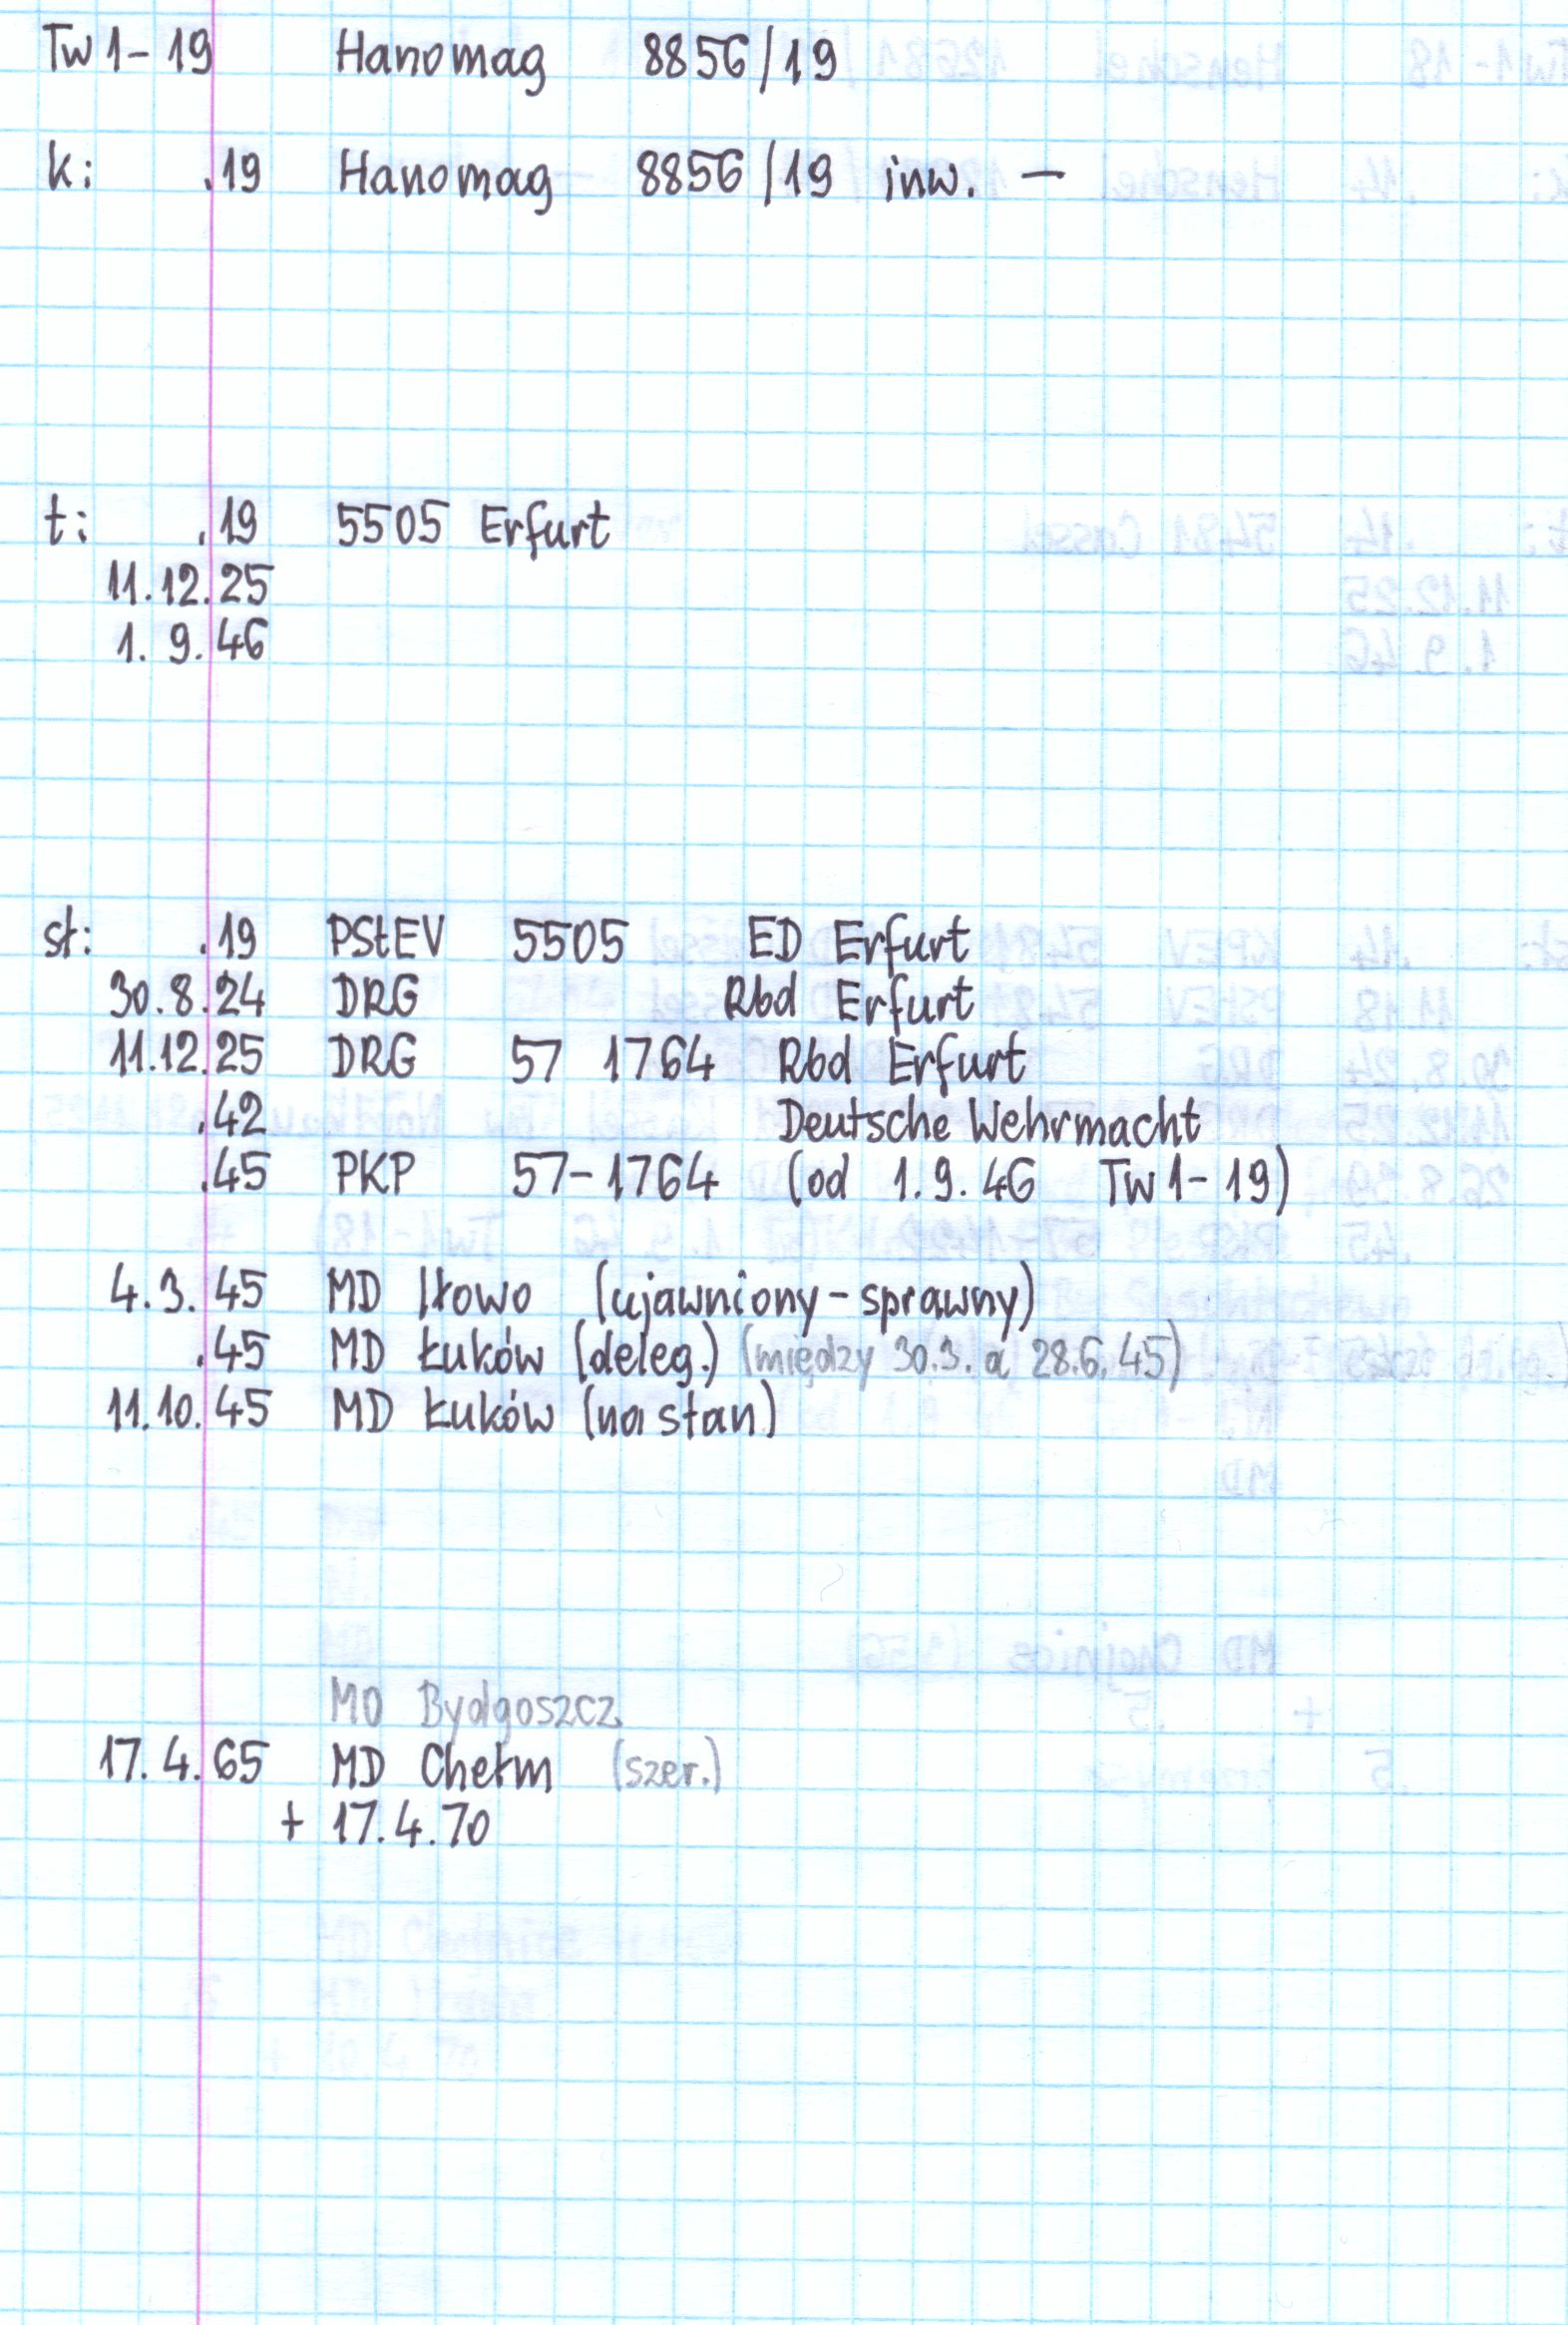 Tw 1-19 Hanomag 8856/19
k: .19 Hanomag 8856/19 inw. —
t: .19 5505 Erfurt
11.12.25
1. 9. 46
st: .19 PStEV 5505 ED Erfurt
30.8.24 DRG Rbd Erfurt
11.12.25 DRG 57 1764 Rbd Erfurt
.42 Deutsche Wehrmacht
.45 PKP 57-1764 (od 1.9.46 Tw 1-19)
4.3.45 MD Iłowo (ujawniony - sprawny)
.45 MD Łuków (deleg.) (między 30.3. a 28.6.45)
11.10.45 MD Łuków (na stan)
MD Bydgoszcz
17.4.65 MD Chełm (szer.)
+ 17.4.70